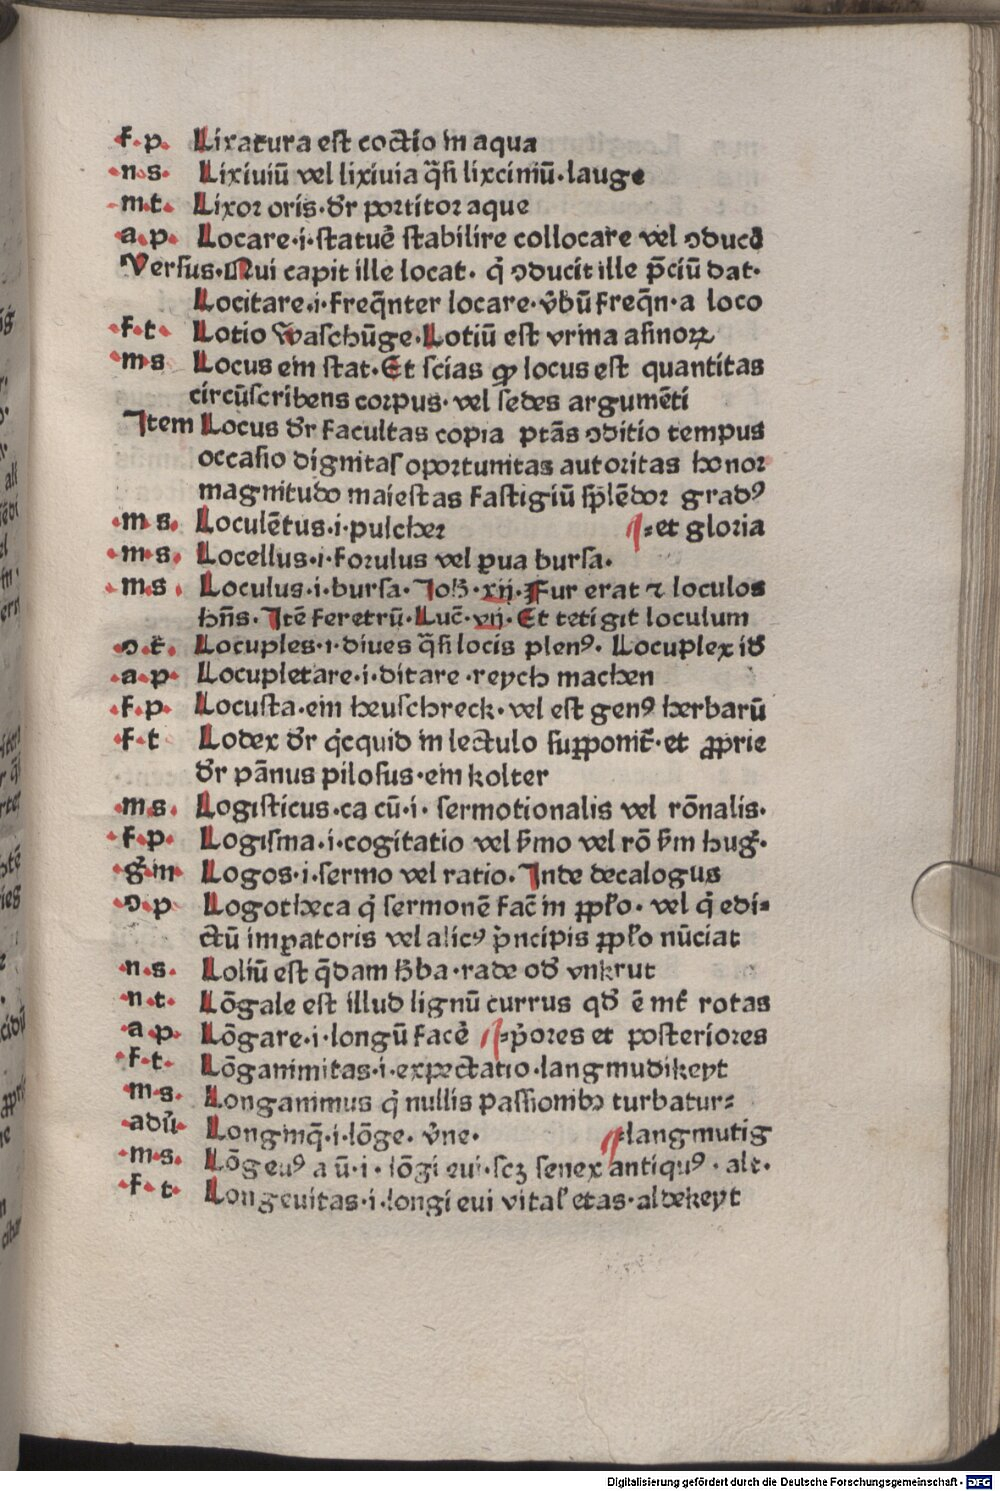 ·f·p· Lixatura est coctio in aqua
·n·s· Lixiuiū vel lixiuia q̄si lixciniū·lauge
·m·t· Lixor oris·dr̄ portitor aque
·a·p· Locare·i·statuē stabilire collocare vel ↄducē
Versus·Qui capit ille locat· q̄ ↄducit ille p̄ciū dat·
Locitare·i·freq̄nter locare·v̄bū freq̄n·a loco
·f·t· Lotio waschūge·Lotiū est vrina asinoꝝ
·m·s Locus ein stat·Et scias ꝙ locus est quantitas
circūscribens corpus·vel sedes argumēti
Item Locus dr̄ facultas copia ptās ↄditio tempus
occasio dignitas oportunitas autoritas honor
magnitudo maiestas fastigiū splēdor gradꝰ
·m·s· Loculētus·i·pulcher ¶=et gloria
·m·s· Locellus·i·forulus vel ꝑua bursa·
·m·s· Loculus·i·bursa·Joh̄·xij·Fur erat ⁊ loculos
hn̄s·Itē feretrū·Luc̄·vij·Et tetigit loculum
·ↄ·t̄· Locuples·i·diues q̄si locis plenꝰ· Locuplex id̄
·a·p· Locupletare·i·ditare·reych machen
·f·p· Locusta·ein heuschreck·vel est genꝰ herbarū
·f·t Lodex dr̄ q̇cquid in lectulo supponit̄·et ꝓprie
dr̄ pānus pilosus·ein kolter
·m·s· Logisticus·ca cū·i· sermotionalis vel rōnalis·
·f·p· Logisma·i·cogitatio vel s̄mo vel rō s̄m huḡ·
·ḡ·m· Logos·i·sermo vel ratio·Inde decalogus
·ↄ·p Logotheca q̇ sermonē fac̄ in ꝓpƚo·vel q̇ edi=
ctū imꝑatoris vel alicꝰ pͥncipis ꝓpƚo nūciat
·n·s· Loliū est q̄dam h̄ba·rade od̄ vnkrut
·n·t· Lōgale est illud lignū currus qd̄ ē int̄ rotas
·a·p· Lōgare·i·longū facē ¶=pͥores et posteriores
·f·t· Lōganimitas·i·expectatio·langmudikeyt
·m·s· Longanimus q̇ nullis passionibꝫ turbatur=
·adū· Longinq̄·i·lōge·v̄ne· ¶=langmutig
·m·s· Lōgeuꝰ a ū·i·lōgi eui·scꝫ senex antiquꝰ·alt·
·f·t· Longeuitas·i·longi eui vitas etas·aldekeyt
Digitalisierung gefördert durch die Deutsche Forschungsgemeinschaft · DFG